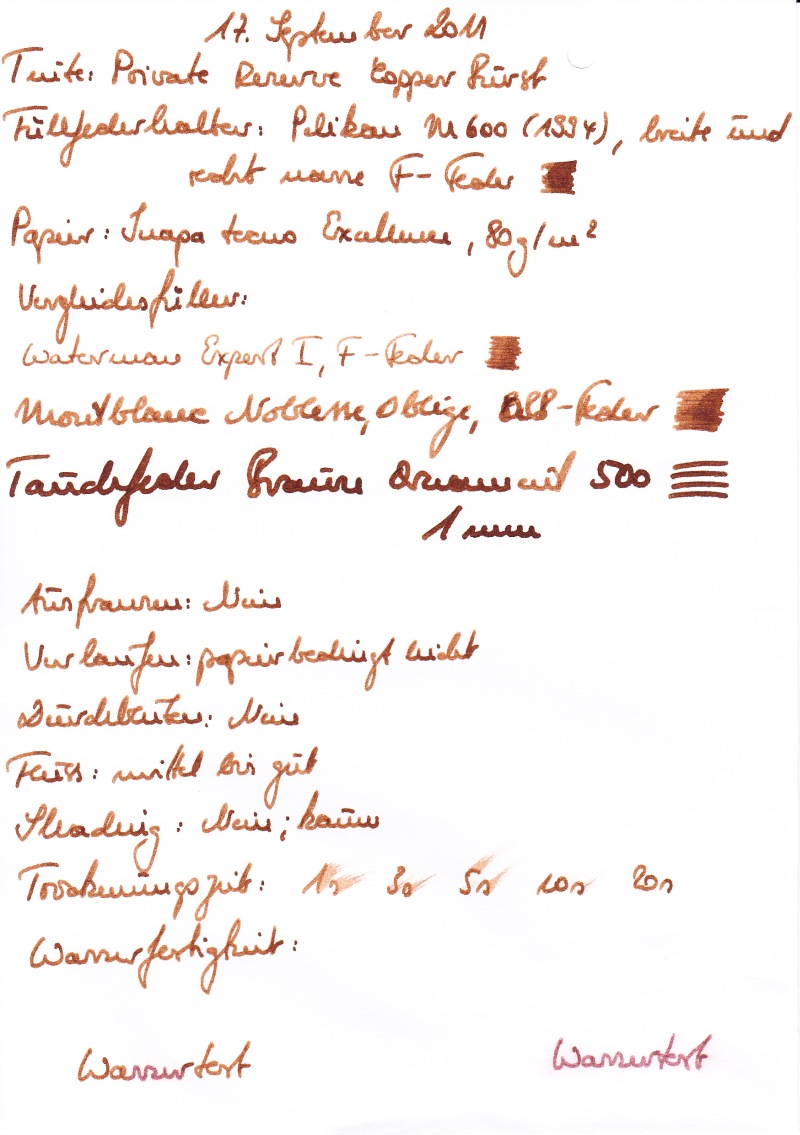 17. September 2011
Tinte: Private Reserve Copper Burst
Füllfederhalter: Pelikan M600 (1994), breite und
recht nasse F-Feder
Papier: Inapa tecno Excellence, 80g/m²
Vergleichsfüller:
Waterman Expert I, F-Feder
Montblanc Noblesse Oblige, OBB-Feder
Tauchfeder Brause Ornament 500
1 mm
Ausfransen: Nein
Verlaufen: papierbedingt nicht
Durchbluten: Nein
Fluss: mittel bis gut
Shading: Nein; kaum
Trocknungszeit: 1s 3s 5s 10s 20s
Wasserfestigkeit:
Wassertest Wassertest